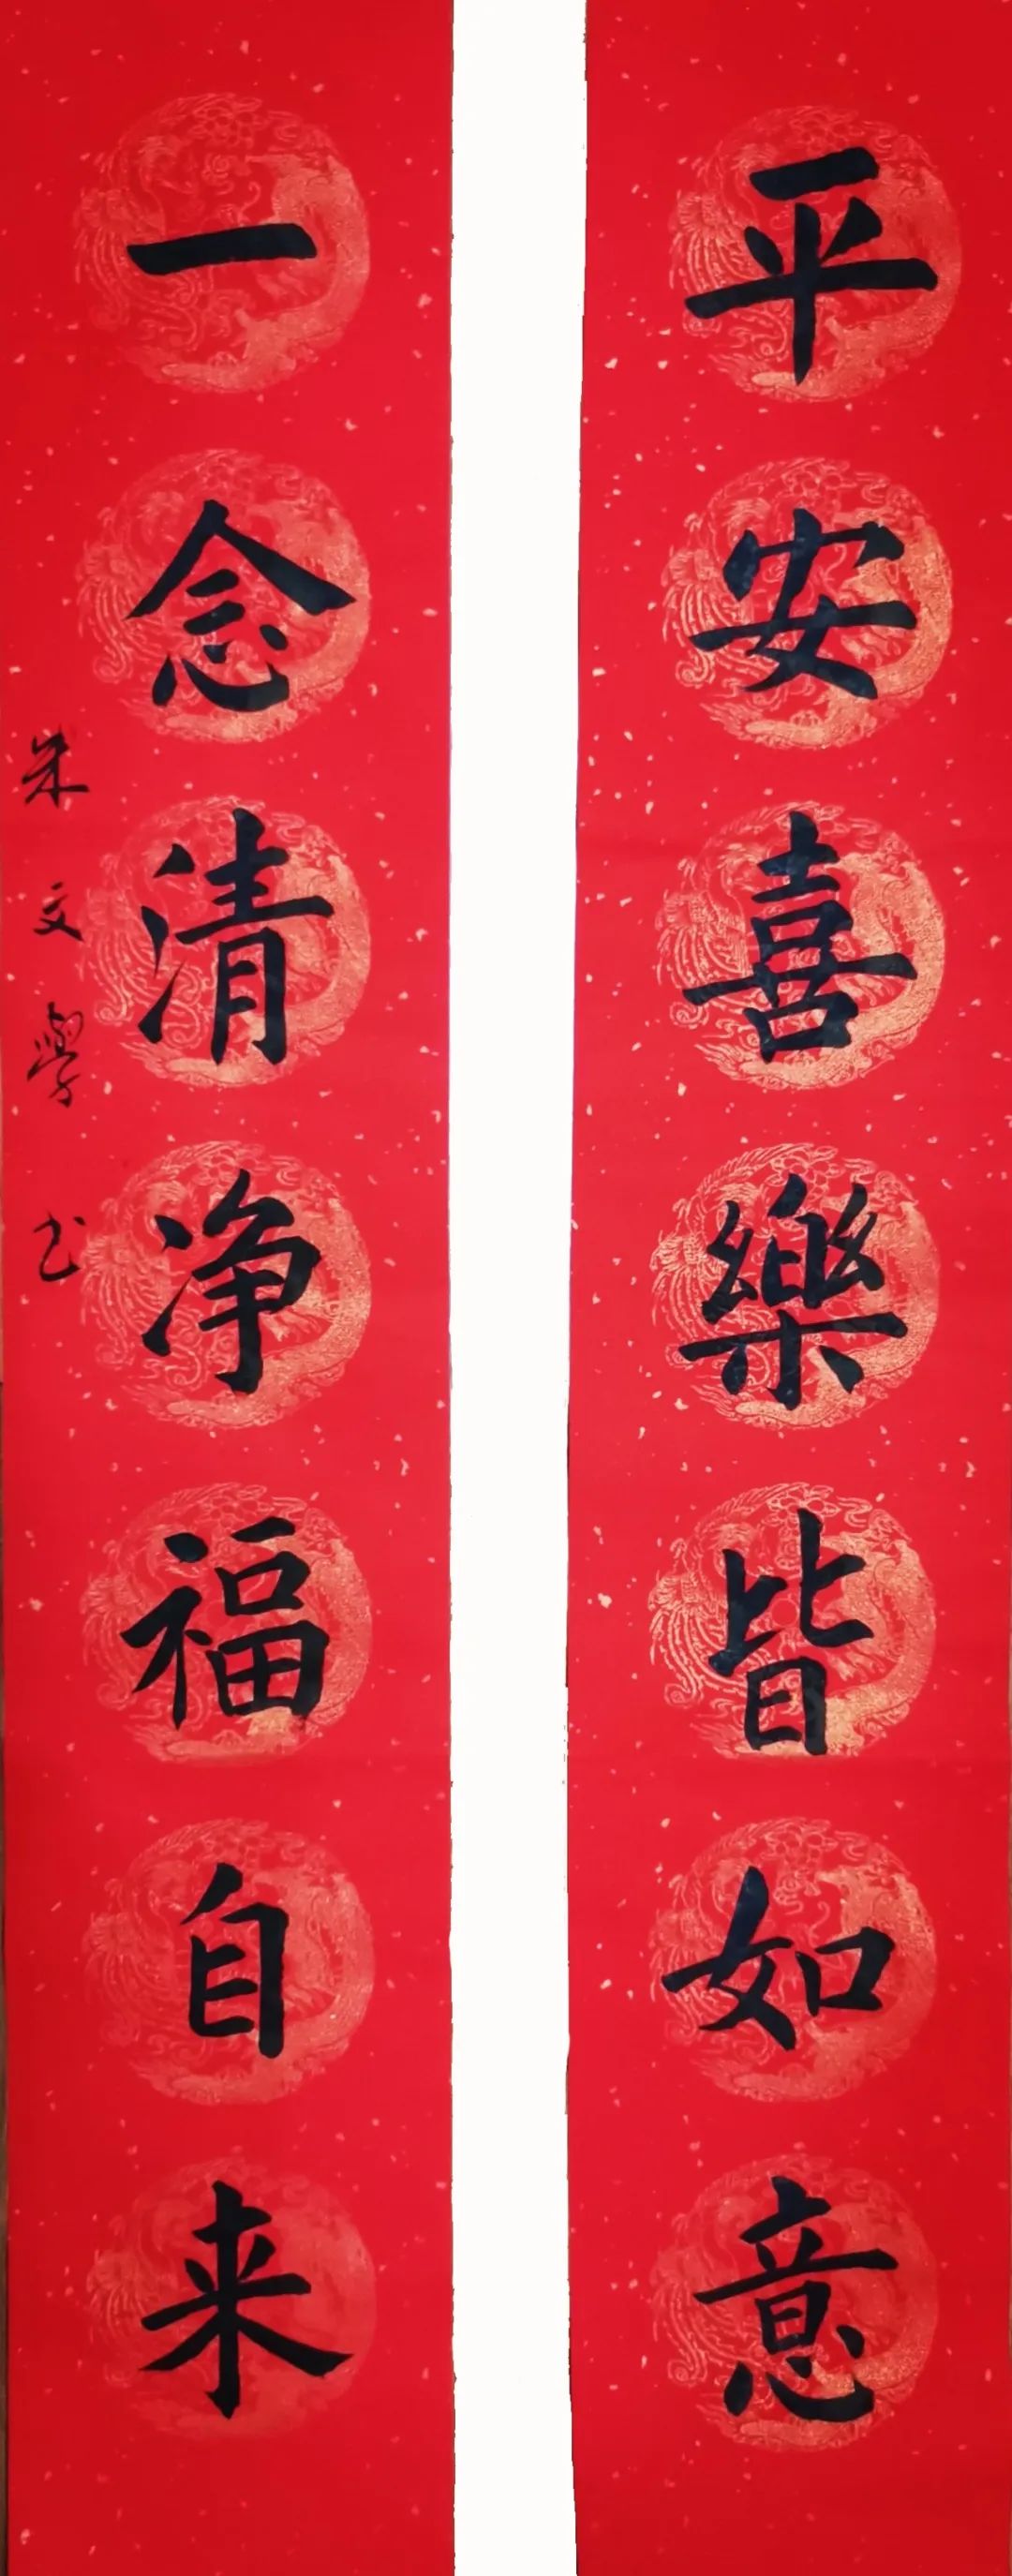 平安喜樂皆如意
一念清净福自来
朱文學书